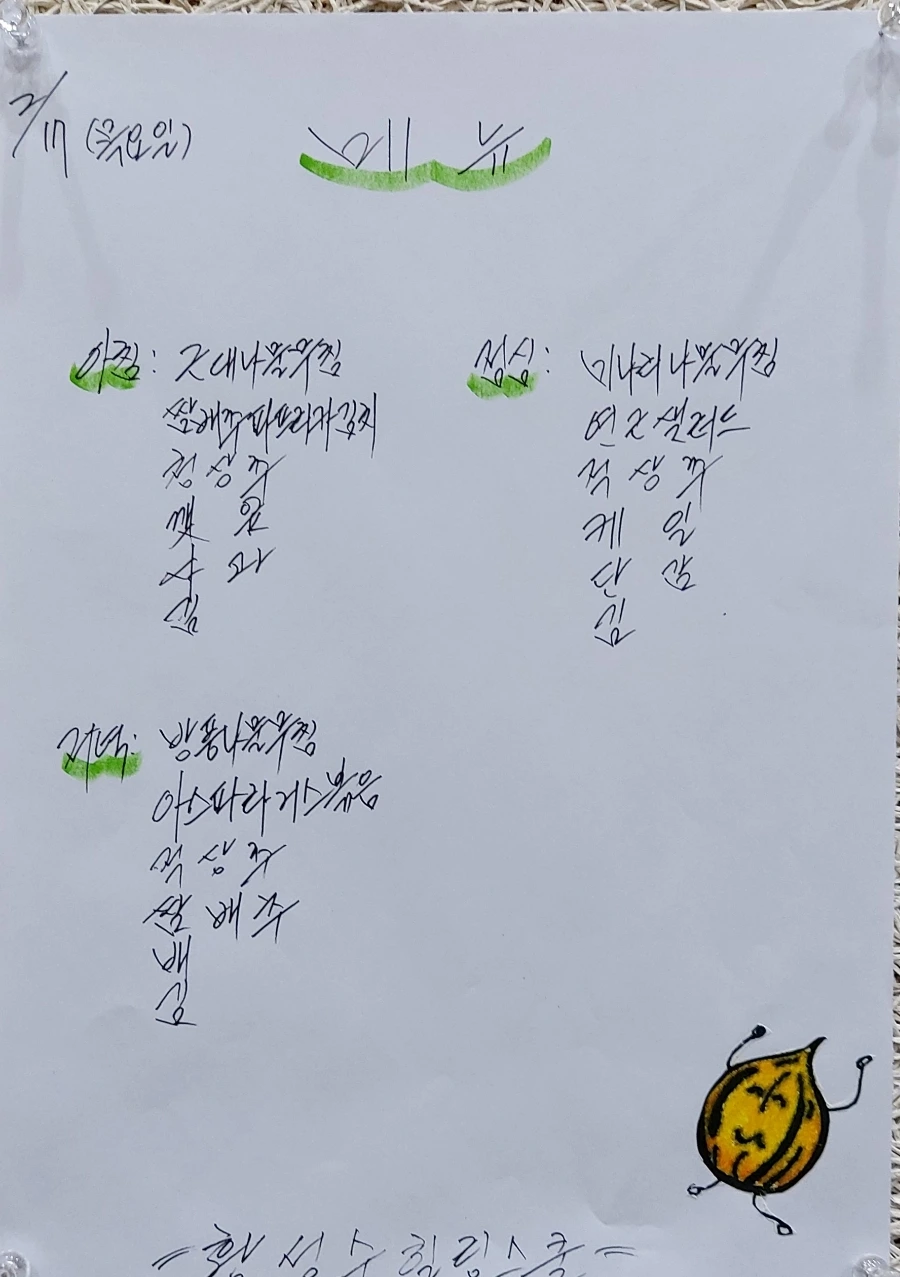 2/17 (목요일)
메뉴
아침: 근대나물무침
쌈배추파프리카김치
청상추
깻잎
사과
김
점심: 미나리나물무침
연근샐러드
적상추
케일
단감
김
저녁: 방풍나물무침
아스파라거스볶음
적상추
쌈배추
배
김
=황성수힐링스쿨=